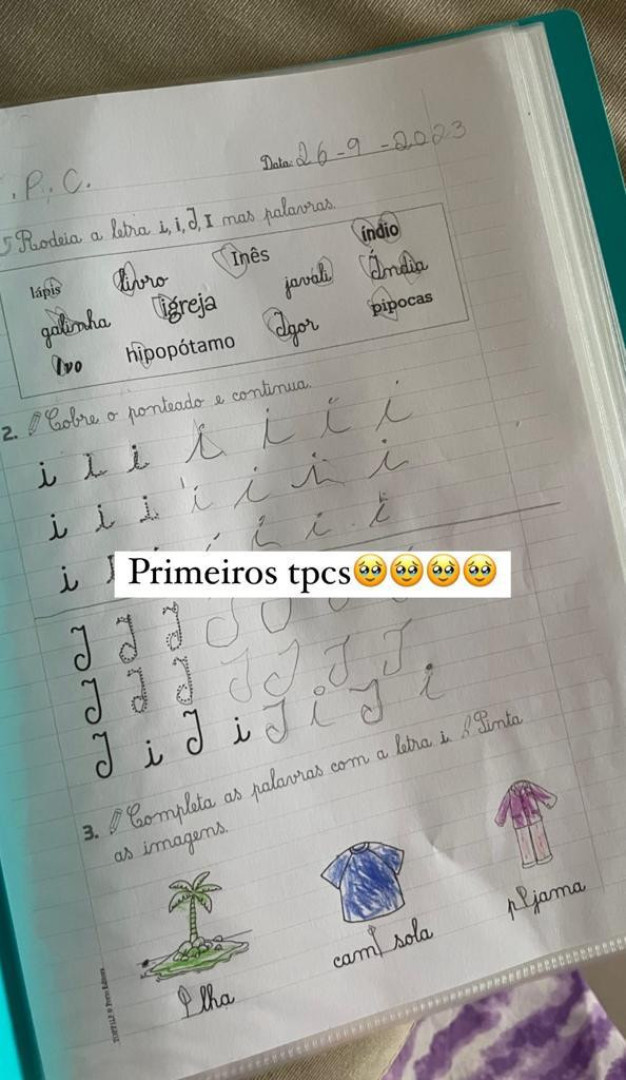 T.P.C.
Data: 26-9-2023
Rodeia a letra i, i, I, I nas palavras.
lápis livro Inês índio
galinha igreja javali Índia
Ivo hipopótamo Igor pipocas
2. Cobre o ponteado e continua.
i i i i i i i
i i i i i i i
i i i i i i
Primeiros tpcs🥹🥹🥹🥹
I I I I I
I I I I I I I
I i I i I i I i
3. Completa as palavras com a letra i. Pinta
as imagens.
ilha camisola pijama